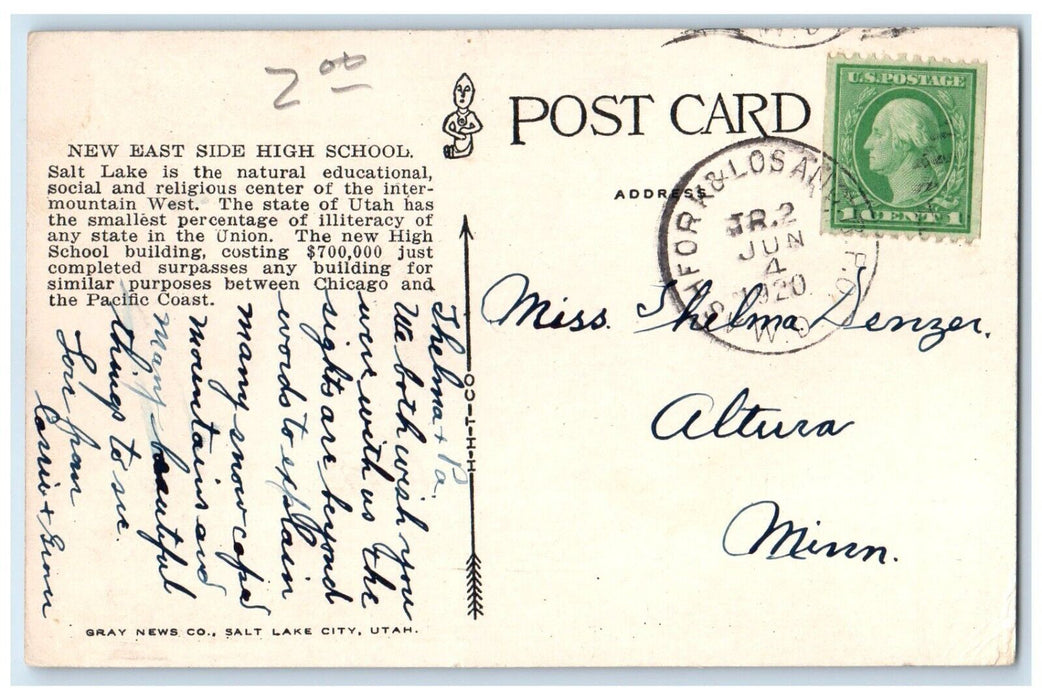 2 00
POST CARD
U.S. POSTAGE
1 CENT 1
ADDRESS
FORD & LOS AN
TR. 2
JUN
4
1920
R.P.O.
W.D.
NEW EAST SIDE HIGH SCHOOL.
Salt Lake is the natural educational,
social and religious center of the inter-
mountain West. The state of Utah has
the smallest percentage of illiteracy of
any state in the Union. The new High
School building, costing $700,000 just
completed surpasses any building for
similar purposes between Chicago and
the Pacific Coast.
Thelma + Pa.
We both wish you
were with us the
sights are beyond
words to explain
many snow caped
mountains and
many beautiful
things to see.
Carrie +
H-H-T-CO
Miss. Thelma Denzer.
Altura
Minn.
GRAY NEWS CO., SALT LAKE CITY, UTAH.